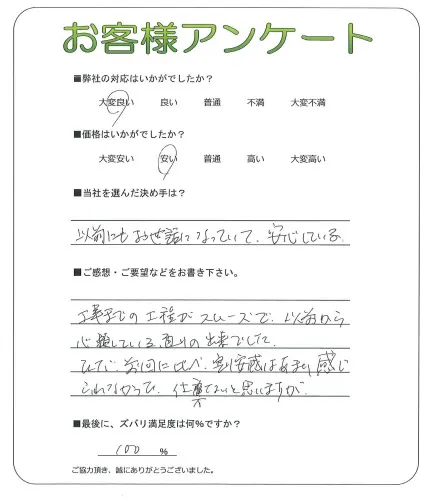 お客様アンケート
■弊社の対応はいかがでしたか?
大変良い 良い 普通 不満 大変不満
■価格はいかがでしたか?
大変安い 安い 普通 高い 大変高い
■当社を選んだ決め手は?
以前にもお世話になっていて、安心している。
■ご感想・ご要望などをお書き下さい。
工事までの工程がスムーズで、以前から
信頼している通りの出来でした。
ただ、前回に比べ、割安感はあまり感じ
られなかった。仕方ないと思いますが、
■最後に、ズバリ満足度は何%ですか?
100 %
ご協力頂き、誠にありがとうございました。